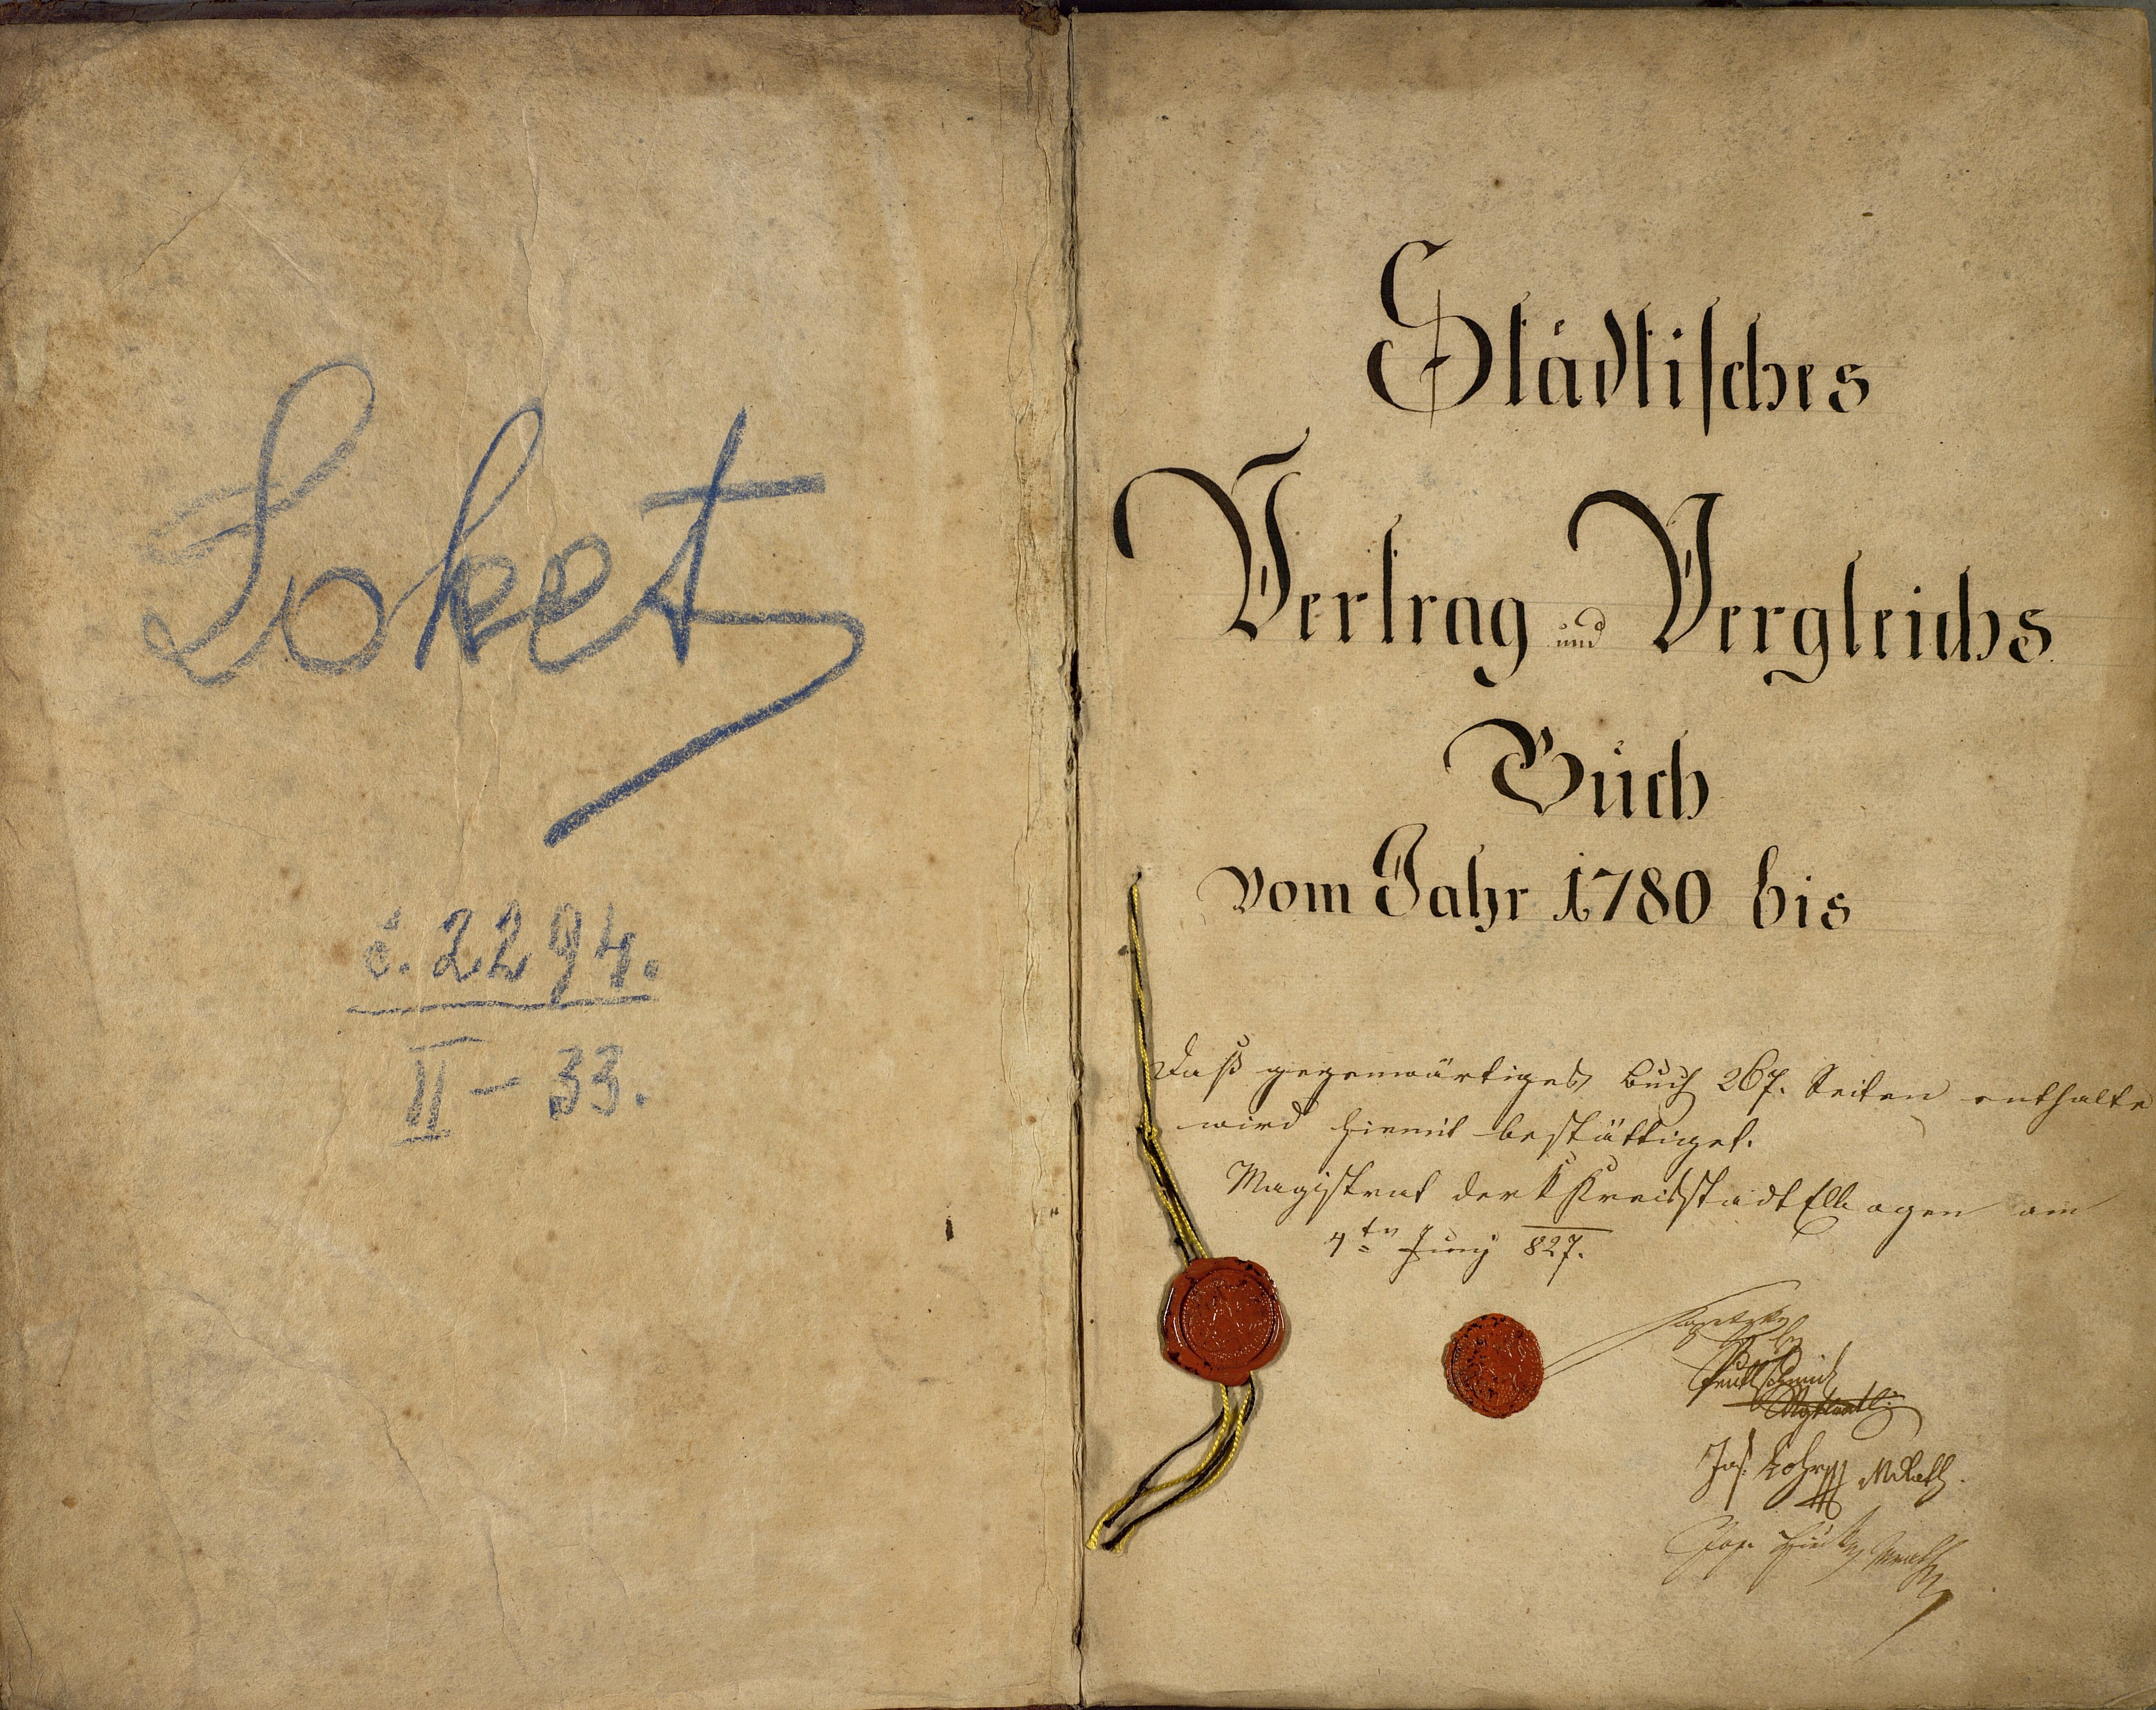 Loket
č. 2294.
II – 33.
Städtisches
Vertrag und Vergleichs
Buch
vom Jahr 1780 bis
Daß gegenwärtiges Buch 267. Seiten enthalte
wird hiemit bestättiget.
Magistrat der k Kreisstadt Ellbogen am
4ten Juny 827.
Jos. Lohr MRath.